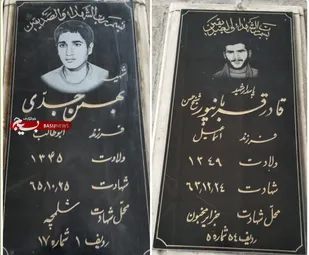 شهید
بهمن جدی
فرزند ابوطالب
ولادت ۱۳۴۵
شهادت ۶۵,۱۰,۲۵
محل شهادت شلمچه
ردیف ۱ شماره ۱۷
بسیج
BASIJNEWS
پاسدار شهید
قادر
فرزند
ولادت ۱۳۴۹
شهادت ۶۳,۱۲,۲۴
محل شهادت جزایر مجنون
ردیف ۵۴ شماره ۵